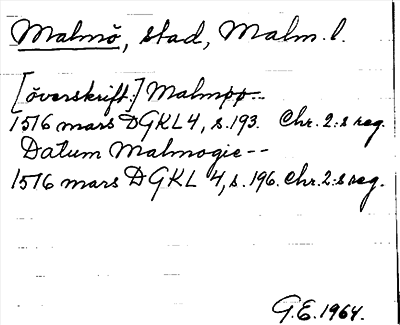 Malmö, stad, Malm. l.
[överskrift:] Malmøø--
1516 mars DGKL 4, s. 193. Chr. 2:s reg.
Datum Malmogie --
1516 mars DGKL 4, s. 196. Chr. 2:s reg.
G.E. 1964.